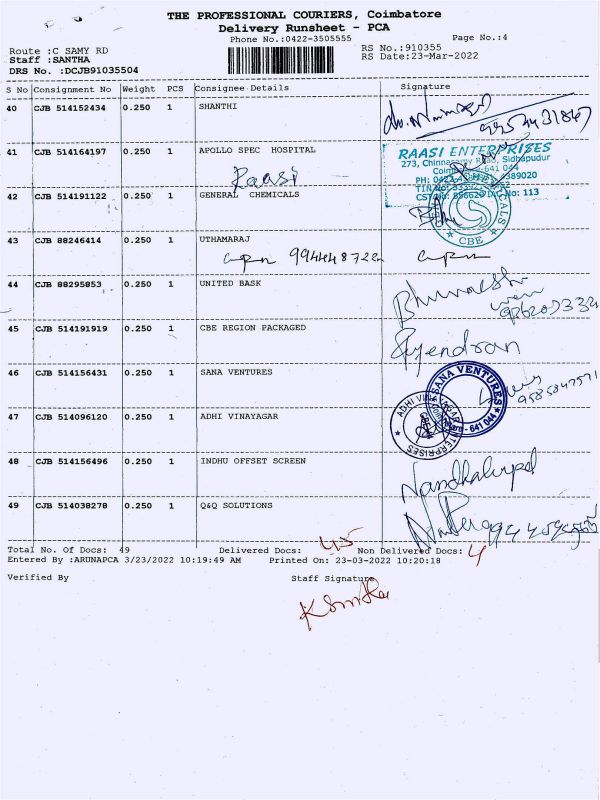 THE PROFESSIONAL COURIERS, Coimbatore
Delivery Runsheet - PCA
Phone No.:0422-3505555 Page No.:4
Route :C SAMY RD RS No.:910355
Staff :SANTHA RS Date:23-Mar-2022
DRS No. :DCJB91035504
S No Consignment No Weight PCS Consignee Details Signature
40 CJB 514152434 0.250 1 SHANTHI
41 CJB 514164197 0.250 1 APOLLO SPEC HOSPITAL
RAASI ENTERPRISES
273, Chinnasamy Road, Sidhapudur
641 044
Raasi
42 CJB 514191122 0.250 1 GENERAL CHEMICALS
CBE
43 CJB 88246414 0.250 1 UTHAMARAJ
44 CJB 88295853 0.250 1 UNITED BASK
45 CJB 514191919 0.250 1 CBE REGION PACKAGED
46 CJB 514156431 0.250 1 SANA VENTURES
SANA VENTURES
641 044
47 CJB 514096120 0.250 1 ADHI VINAYAGAR
48 CJB 514156496 0.250 1 INDHU OFFSET SCREEN
49 CJB 514038278 0.250 1 Q&Q SOLUTIONS
Total No. Of Docs: 49 Delivered Docs: 45 Non Delivered Docs: 4
Entered By :ARUNAPCA 3/23/2022 10:19:49 AM Printed On: 23-03-2022 10:20:18
Verified By Staff Signature